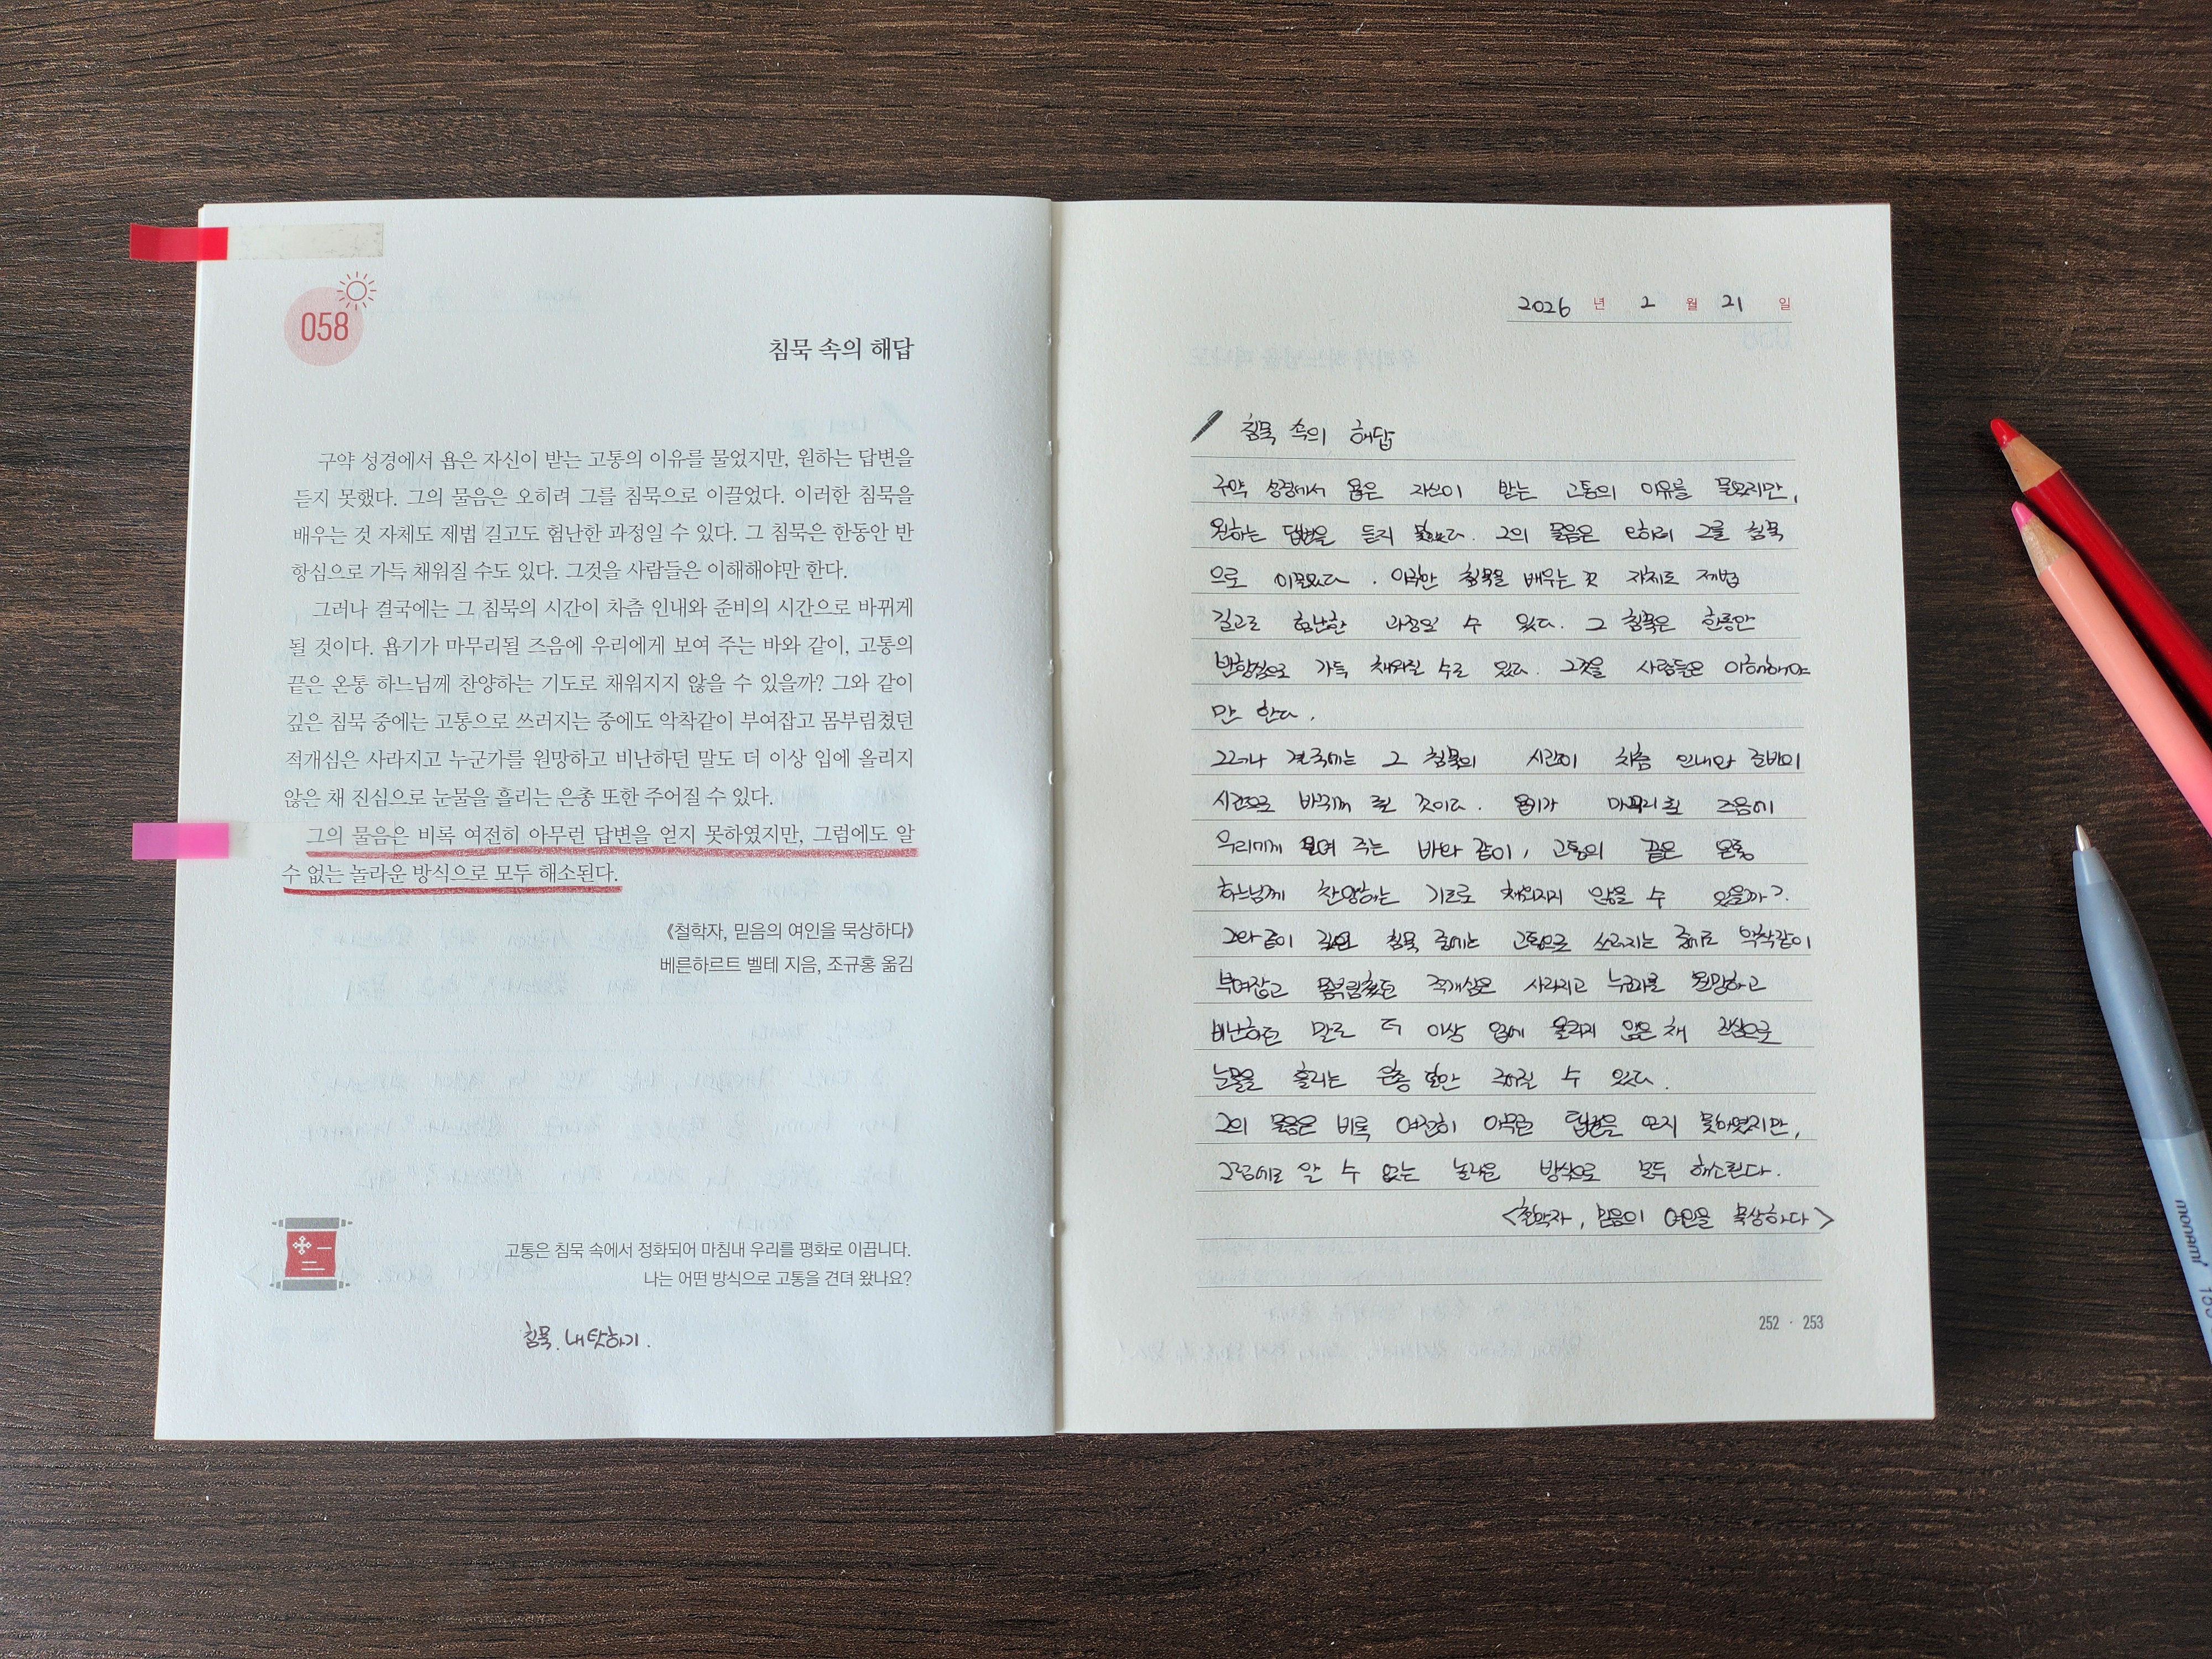 058
침묵 속의 해답
구약 성경에서 욥은 자신이 받는 고통의 이유를 물었지만, 원하는 답변을
듣지 못했다. 그의 물음은 오히려 그를 침묵으로 이끌었다. 이러한 침묵을
배우는 것 자체도 제법 길고도 험난한 과정일 수 있다. 그 침묵은 한동안 반
항심으로 가득 채워질 수도 있다. 그것을 사람들은 이해해야만 한다.
그러나 결국에는 그 침묵의 시간이 차츰 인내와 준비의 시간으로 바뀌게
될 것이다. 욥기가 마무리될 즈음에 우리에게 보여 주는 바와 같이, 고통의
끝은 온통 하느님께 찬양하는 기도로 채워지지 않을 수 있을까? 그와 같이
깊은 침묵 중에는 고통으로 쓰러지는 중에도 악착같이 부여잡고 몸부림쳤던
적개심은 사라지고 누군가를 원망하고 비난하던 말도 더 이상 입에 올리지
않은 채 진심으로 눈물을 흘리는 은총 또한 주어질 수 있다.
그의 물음은 비록 여전히 아무런 답변을 얻지 못하였지만, 그럼에도 알
수 없는 놀라운 방식으로 모두 해소된다.
《철학자, 믿음의 여인을 묵상하다》
베른하르트 벨테 지음, 조규홍 옮김
고통은 침묵 속에서 정화되어 마침내 우리를 평화로 이끕니다.
나는 어떤 방식으로 고통을 견뎌 왔나요?
침묵. 내 탓하기.
2026 년 2 월 21 일
침묵 속의 해답
구약 성경에서 욥은 자신이 받는 고통의 이유를 물었지만,
원하는 답변을 듣지 못했다. 그의 물음은 오히려 그를 침묵
으로 이끌었다. 침묵을 배우는 것 자체도 제법
길고도 험난한 과정일 수 있다. 그 침묵은 한동안
반항심으로 가득 채워질 수도 있다. 그것을 사람들은 이해해야
만 한다.
그러나 결국에는 그 침묵의 시간이 차츰 인내와 준비의
시간으로 바뀌게 될 것이다. 욥기가 마무리될 즈음에
우리에게 보여 주는 바와 같이, 고통의 끝은 온통
하느님께 찬양하는 기도로 채워지지 않을 수 있을까?
그와 같이 깊은 침묵 중에는 고통으로 쓰러지는 중에도 악착같이
부여잡고 몸부림쳤던 적개심은 사라지고 누군가를 원망하고
비난하던 말도 더 이상 입에 올리지 않은 채 진심으로
눈물을 흘리는 은총 또한 주어질 수 있다.
그의 물음은 비록 여전히 아무런 답변을 얻지 못하였지만,
그럼에도 알 수 없는 놀라운 방식으로 모두 해소된다.
<철학자, 믿음의 여인을 묵상하다>
252 · 253
monami